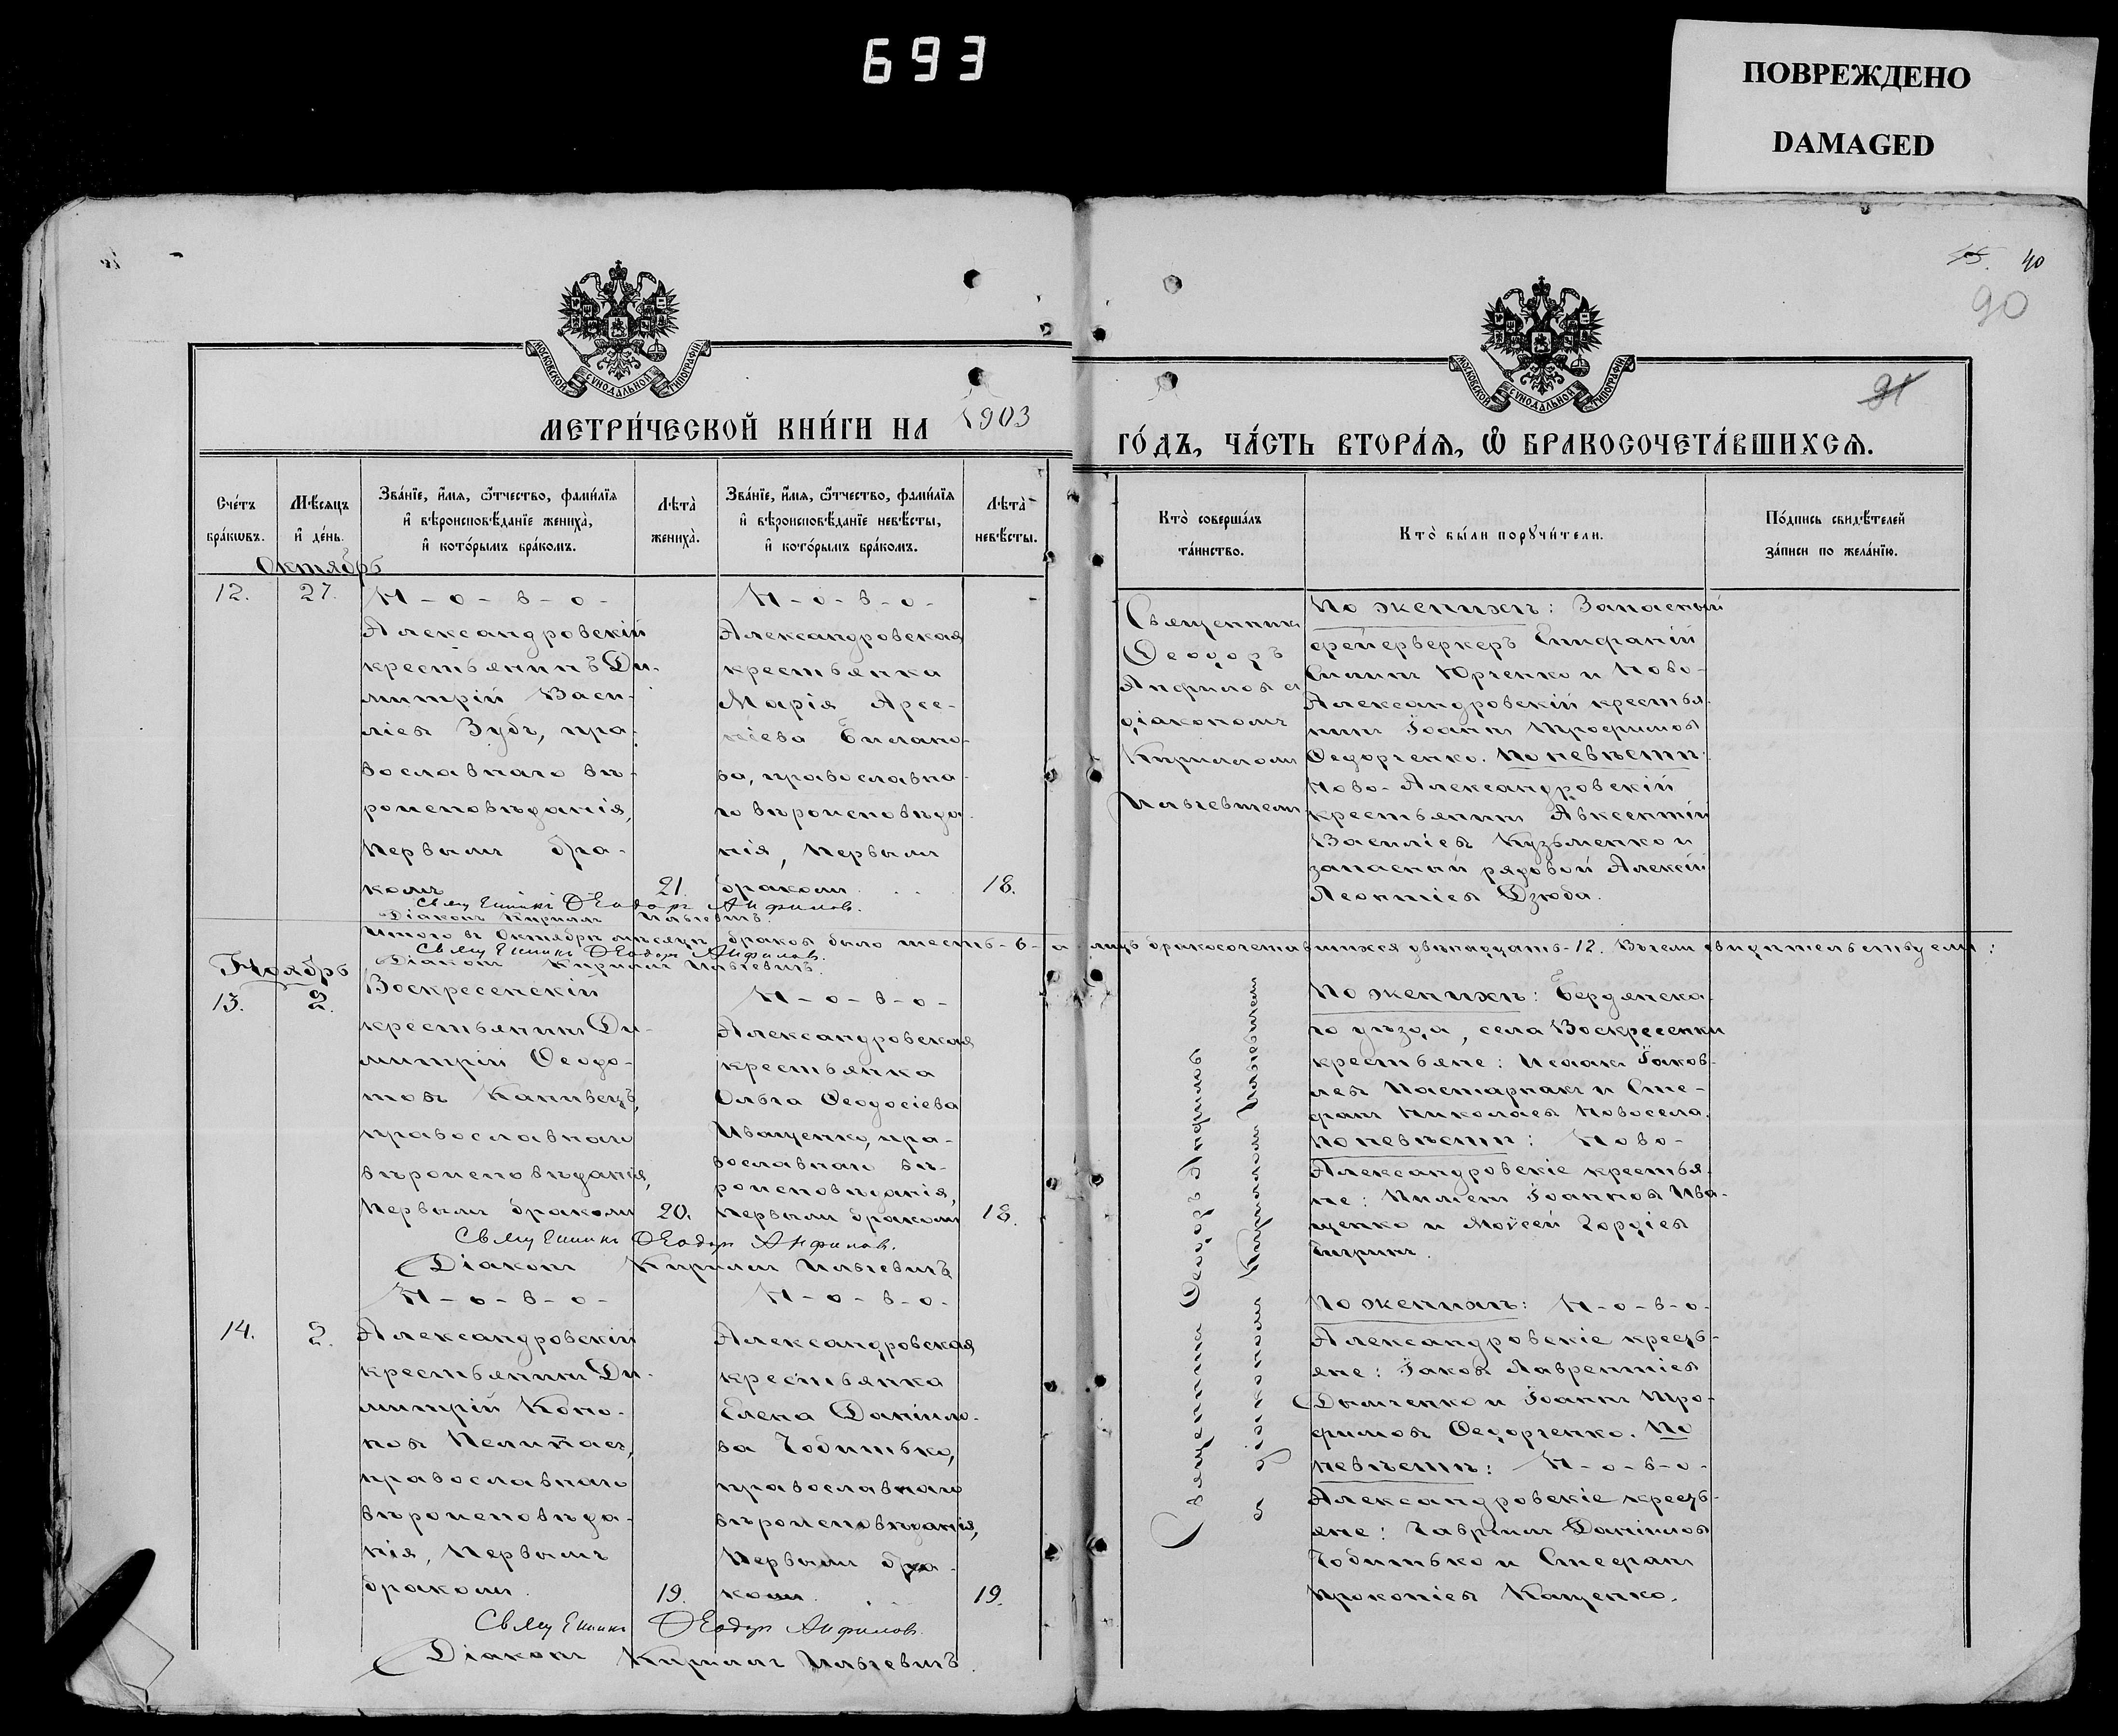 693
ПОВРЕЖДЕНО
DAMAGED
40
90
91
МОСКОВСКОЙ СУНОДАЛЬНОЙ ТИПОГРАФІИ
МОСКОВСКОЙ СУНОДАЛЬНОЙ ТИПОГРАФІИ
МЕТРИ́ЧЕСКОЙ КНИ́ГИ НА 1903
ГО́ДЪ, ЧА́СТЬ ВТОРА́Ѧ, Ѽ БРАКОСОЧЕТА́ВШИХСѦ.
Сче́тъ
бра́кѡвъ.
Мѣ́сяцъ
и҆ де́нь.
Зва́нїе, и҆́мя, ѻ҆́тчество, фами́лїя
и҆ вѣроисповѣ́данїе жениха̀,
и҆ кото́рымъ бра́комъ.
Лѣта̀
жениха̀.
Зва́нїе, и҆́мя, ѻ҆́тчество, фами́лїя
и҆ вѣроисповѣ́данїе невѣ́сты,
и҆ кото́рымъ бра́комъ.
Лѣта̀
невѣ́сты.
Кто̀ соверша́лъ
та́инство.
Кто̀ бы́ли порꙋчи́тели.
По́дпись свидѣ́телей
за́писи по жела́нїю.
Октябрь
12.
27.
Н-о-в-о-
Александровскій
крестьянинъ Ди-
митрій Васи-
ліевъ Зубъ, пра-
вославнаго вѣ-
роисповѣданія,
первымъ бра-
комъ
21.
Н-о-в-о-
Александровская
крестьянка
Марія Арсе-
ніева Билано-
ва, православна-
го вѣроисповѣда-
нія, первымъ
бракомъ
18.
Священникъ
Ѳеодоръ
Анфиловъ съ
діакономъ
Кирилломъ
Ильчевичемъ
По женихѣ: Запасный
фейерверкеръ Епифаній
Силинъ Юрченко и Ново-
Александровскій крестья-
нинъ Іоаннъ Трофимовъ
Ѳедорченко. По невѣстѣ:
Ново-Александровскій
крестьянинъ Авксентій
Василіевъ Кузьменко и
запасный рядовой Алексій
Леонтіевъ Дзюба.
Священникъ Ѳеодоръ Анфиловъ.
Діаконъ Кириллъ Ильчевичъ
Итого въ Октябрѣ мѣсяцѣ браковъ было шесть-6-а лицъ бракосочетавшихся двѣнадцать-12. Въ чемъ свидѣтельствуемъ:
Священникъ Ѳеодоръ Анфиловъ.
Діаконъ Кириллъ Ильчевичъ.
Ноябрь
13.
2.
Воскресенскій
крестьянинъ Ди-
митрій Ѳеодо-
товъ Канивецъ,
православнаго
вѣроисповѣданія,
первымъ бракомъ
20.
Н-о-в-о-
Александровская
крестьянка
Ольга Ѳеодосіева
Иващенко, пра-
вославнаго вѣ-
роисповѣданія,
первымъ бракомъ
18.
Священникъ Ѳеодоръ Анфиловъ
съ діакономъ Кирилломъ Ильчевичемъ
По женихѣ: Бердянска-
го уѣзда, села Воскресенки
крестьяне: Исаакъ Іаков-
левъ Пастарнакъ и Сте-
фанъ Николаевъ Новосела.
По невѣстѣ: Ново-
Александровскіе крестья-
не: Пименъ Іоанновъ Ива-
щенко и Моѵсей Гордіевъ
Священникъ Ѳеодоръ Анфиловъ.
Діаконъ Кириллъ Ильчевичъ
14.
2.
Н-о-в-о-
Александровскій
крестьянинъ Ди-
митрій Коно-
новъ Пелипасъ,
православнаго
вѣроисповѣда-
нія, первымъ
бракомъ.
19.
Н-о-в-о-
Александровская
крестьянка
Елена Даніило-
ва Чобитько,
православнаго
вѣроисповѣданія,
первымъ бра-
комъ.
19.
По женихѣ: Н-о-в-о-
Александровскіе кресть-
яне: Іаковъ Лаврентіевъ
Дымченко и Іоаннъ Тро-
фимовъ Ѳедорченко. По
невѣстѣ: Н-о-в-о-
Александровскіе кресть-
яне: Гавріилъ Даніиловъ
Чобитько и Стефанъ
Прокопіевъ Кащенко.
Священникъ Ѳеодоръ Анфиловъ
Діаконъ Кириллъ Ильчевичъ.